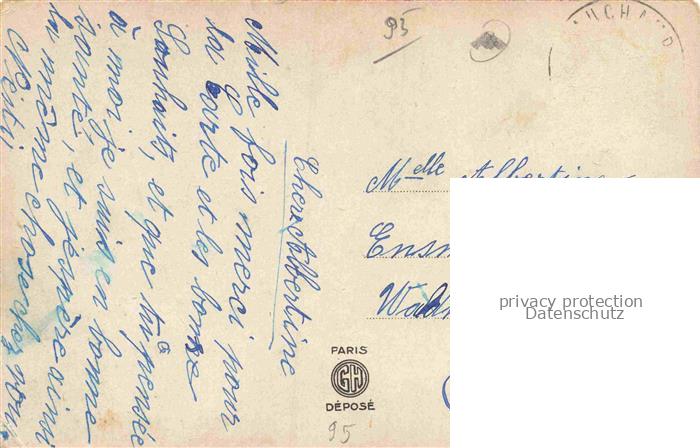 Chère Albertine
Mille fois merci pour
la carte et les bons
Souhaits, et que tu as pensée
à moi, je suis en bonne
santé, et j'espère ainsi
la même chose chez vous
95
Melle Albertine
Ensm
Wald
PARIS
GH
DÉPOSÉ
95
privacy protection
Datenschutz